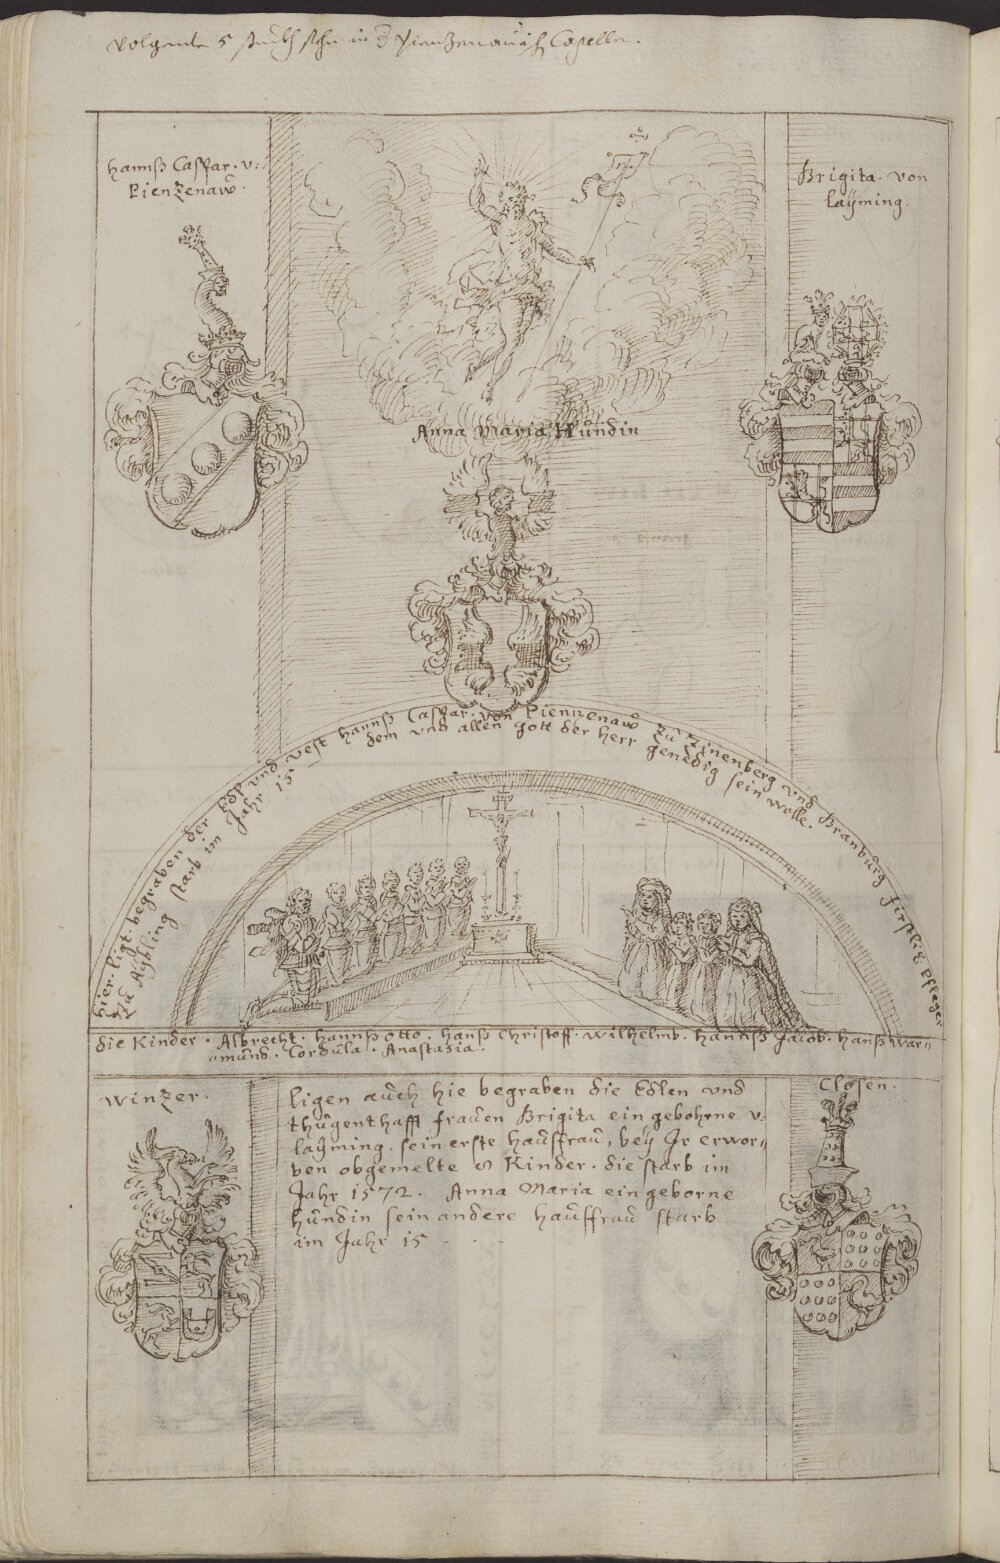 Volgente 5 stuckh sehn in d Pientzenauisch Capelle.
hannß Caspar. v:
Pienzenaw.
Brigita. von
laÿming.
Anna Maria Hundin
hier. ligt. begraben der Edl vnd vest hannß Caspar. von Pienzenaw zu Zinenberg vnd Branburg firstlich Pfleger
zu Aybling starb im Jahr 15 dem vnd allen gott der herr genedig sein wolle.
die Kinder. Albrecht. hannß otto. hanß Christoff. wilhelmb. hannß Jacob. hanß war=
=mund. Cordula. Anastasia.
winzer.
Closen.
ligen auch hie begraben die Edlen vnd
thugenthafft frauen Brigita ein gebohrne v.
laÿming. sein erste haußfrau, beÿ Jr erwor=
ben obgemelte 8 Kinder. die starb im
Jahr 1572. Anna Maria ein geborne
hundin sein andere haußfrau starb
im Jahr 15